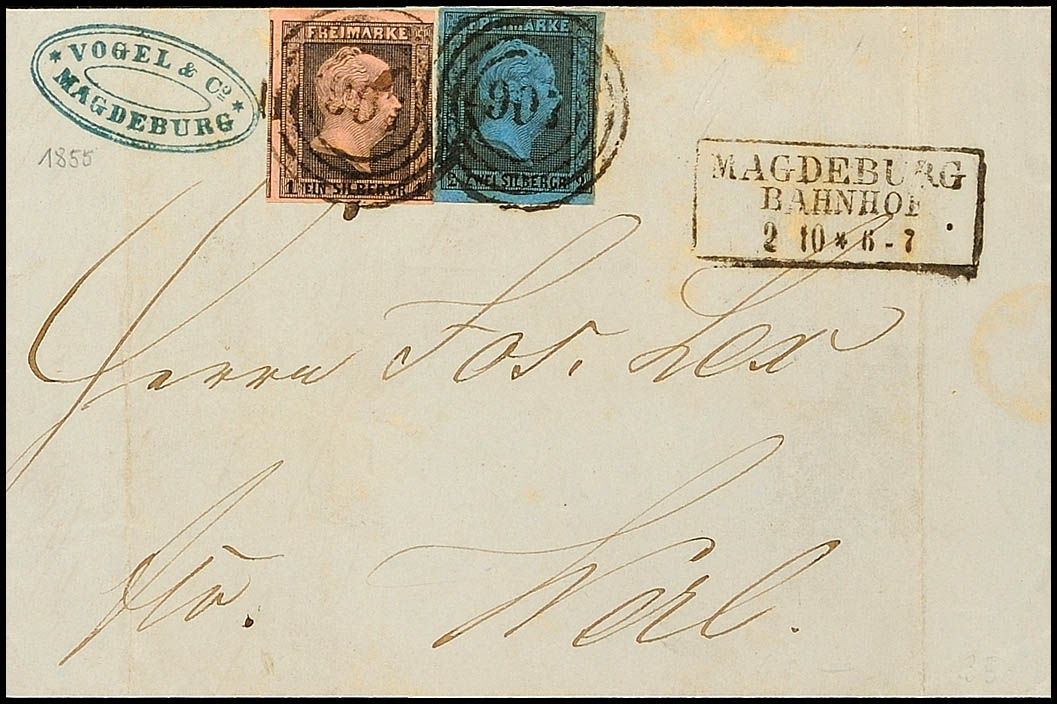 * VOGEL & Cº *
MAGDEBURG
1855
FREIMARKE
1 EIN SILBERGR. 1
FREIMARKE
2 ZWEI SILBERGR. 2
907
MAGDEBURG
BAHNHOF
2 10 * 6 - 7
Herrn Jos. Lex
Werl.